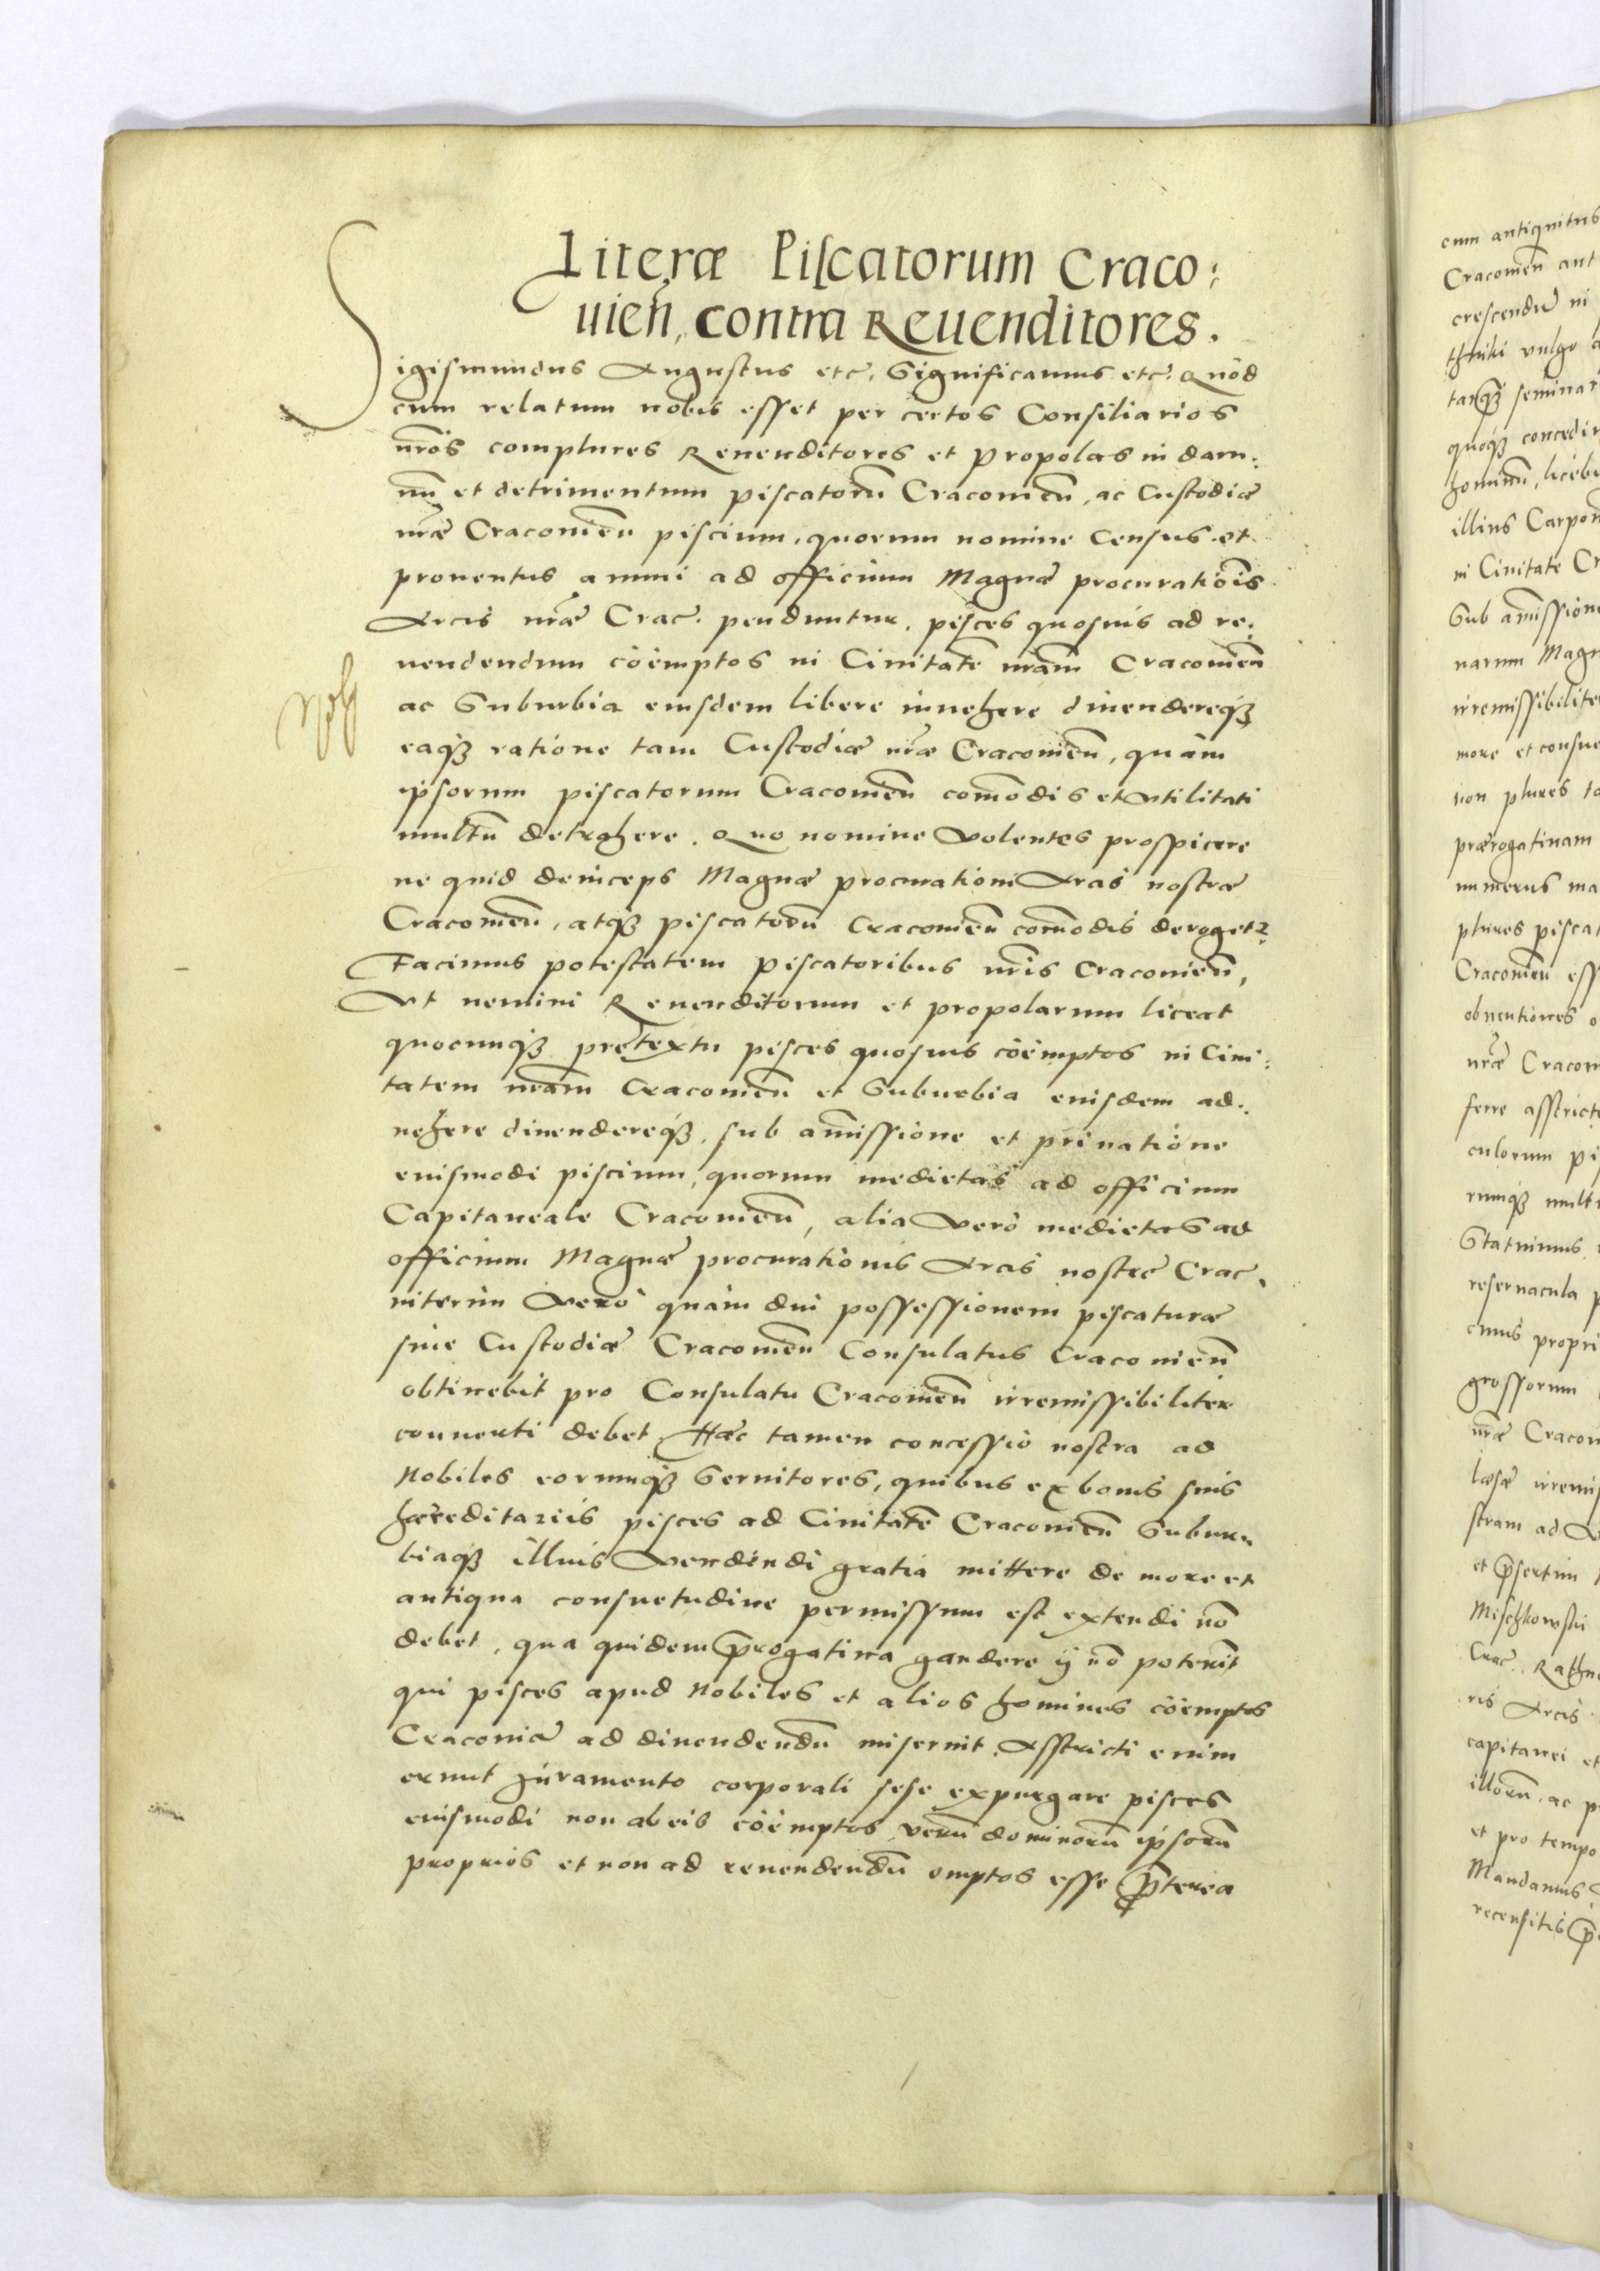 Literæ Piscatorum Craco:
uien̄, contra Reuenditores.
Sigismundus Augustus etc̄. Significamus etc̄. Quòd
cum relatum nobis esset per certos Consiliarios
nr̄os complures Reuenditores et Propolas in dam:
nū et detrimentum piscatorū Cracouien̄, ac Custodiæ
nr̄æ Cracouien̄ piscium, quorum nomine Census et
prouentus annui ad officium Magnæ procurationis
Arcis nr̄æ Crac̄. penduntur, pisces quosuis ad re:
uendendum cöemptos in Ciuitatē nr̄am Cracouien̄
ac Suburbia eiusdem libere inuehere diuendereq₃
eaq₃ ratione tam Custodiæ nr̄æ Cracouien̄, quàm
ipsorum piscatorum Cracouien̄ com̄odis et vtilitati
multū detrahere. Quo nomine Volentes prospicere
ne quid deinceps Magnæ procurationi Arcis nostræ
Cracouien̄, atq₃ piscatorū Cracouien̄ com̄odis derogetr
Facimus potestatem piscatoribus nr̄is Cracouien̄,
Vt nemini Reuenditorum et propolarum liceat
quocunq₃ prętextu pisces quosuis cöemptos in Ciui:
tatem nr̄am Cracouien̄ et Suburbia eiusdem ad:
uehere diuendereq₃, sub amissione et priuatione
eiusmodi piscium, quorum medietas ad officium
Capitaneale Cracouien̄, alia Verò medietas ad
officium Magnæ procurationis Arcis nostrę Crac̄,
interim Verò quàm diu possessionem piscaturæ
siue Custodiæ Cracouien̄ Consulatus Cracouien̄
obtinebit pro Consulatu Cracouien̄ irremissibiliter
conuerti debet. Hæc tamen concessio nostra ad
Nobiles eorumq₃ Seruitores, quibus ex bonis suis
hæreditariis pisces ad Ciuitatē Cracouien̄ Subur:
biaq₃ illius Vendendi gratia mittere de more et
antiqua consuetudine permissum est extendi nō
debet, qua quidem p̄rogatiua gaudere ij nō poterūt
qui pisces apud Nobiles et alios homines cöemptos
Cracouiæ ad diuendendū miserint. Asstricti enim
erunt Iuramento corporali sese expurgare pisces
eiusmodi non ab eis cöemptos, verū dominorū ipsorū
proprios et non ad reuendendū emptos esse p̄terea
cum antiquitus
Cracouien̄ ant
crescendū ni
vulgo
tanq₃ seminar
quoq₃ concedi
hominū, licebi
illius Carpon
in Ciuitate Cr
Sub amissione
narum Magn
irremissibilite
more et consue
non plures ta
prærogatiuam
numerus ma
plures piscat
Cracouien̄ ess
obuentiones o
nr̄æ Cracou
ferre asstricti
culorum pi
rumq₃ mult
Statuimus
reseruacula p
cuius propri
grossorum
nr̄æ Cracou
læsæ irremis
stram ad V
et p̄sertim
Mischkowski
Crac̄. Rathn
ris Arcis
capitanei et
illorū, ac p
et pro tempo
Mandamus
recensitis p̄